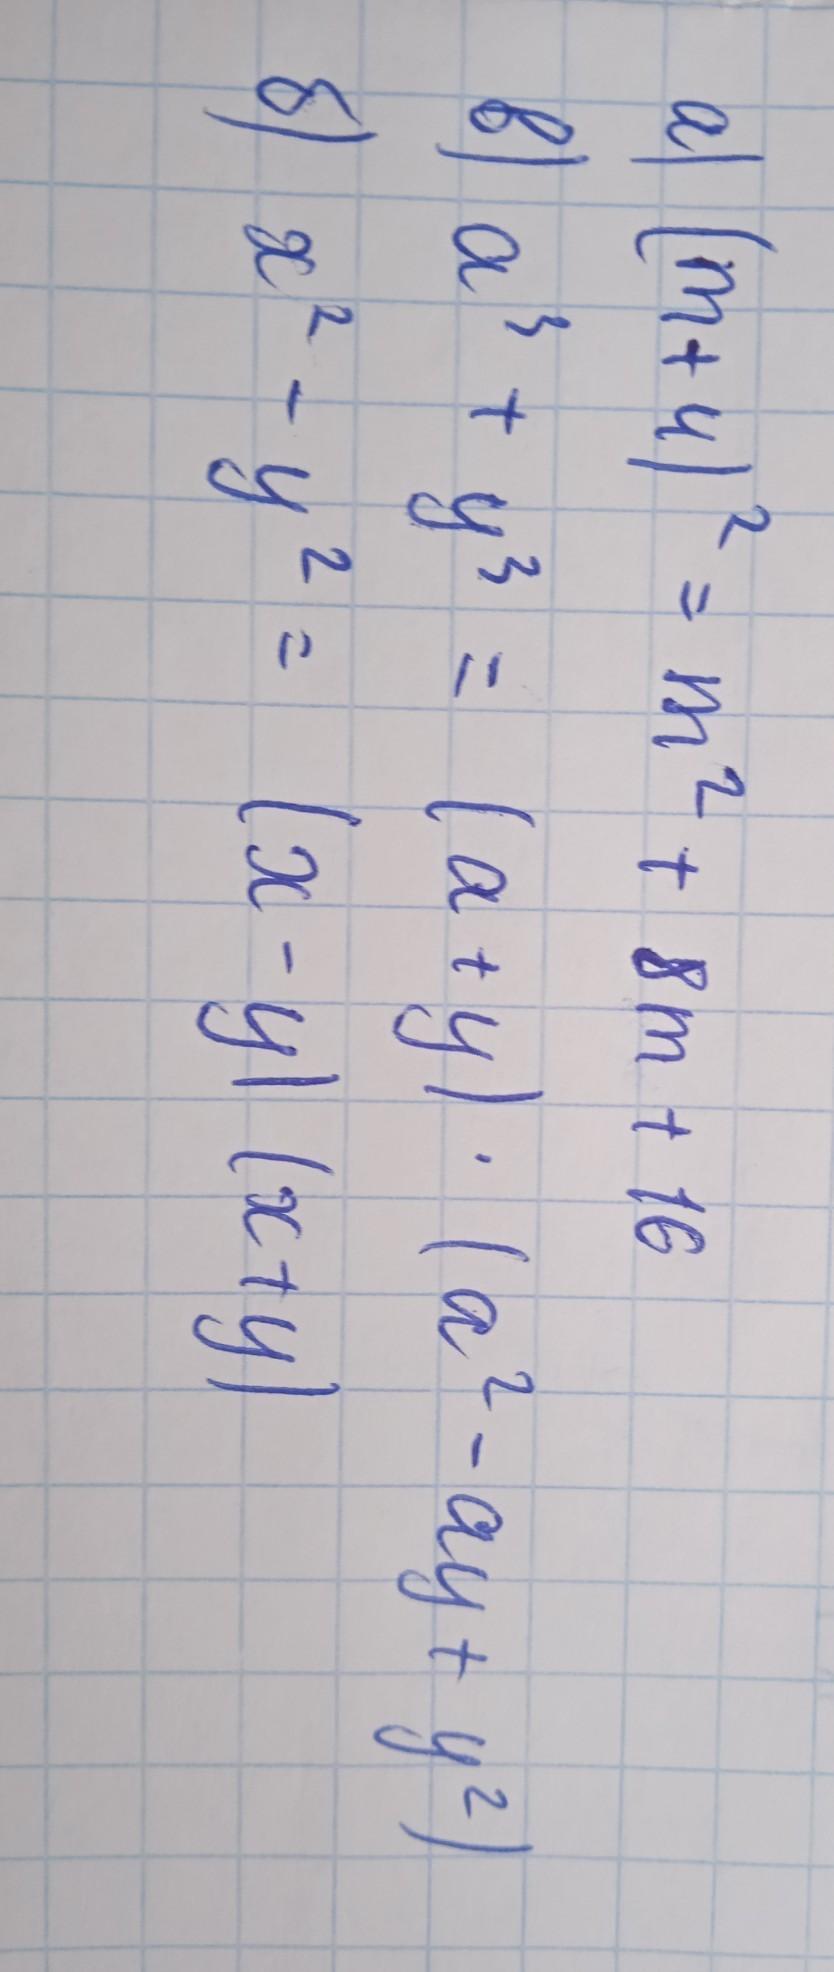 а) (m+4)² = m² + 8m + 16
в) a³ + y³ = (a+y) · (a² - ay + y²)
б) x² - y² = (x-y) (x+y)